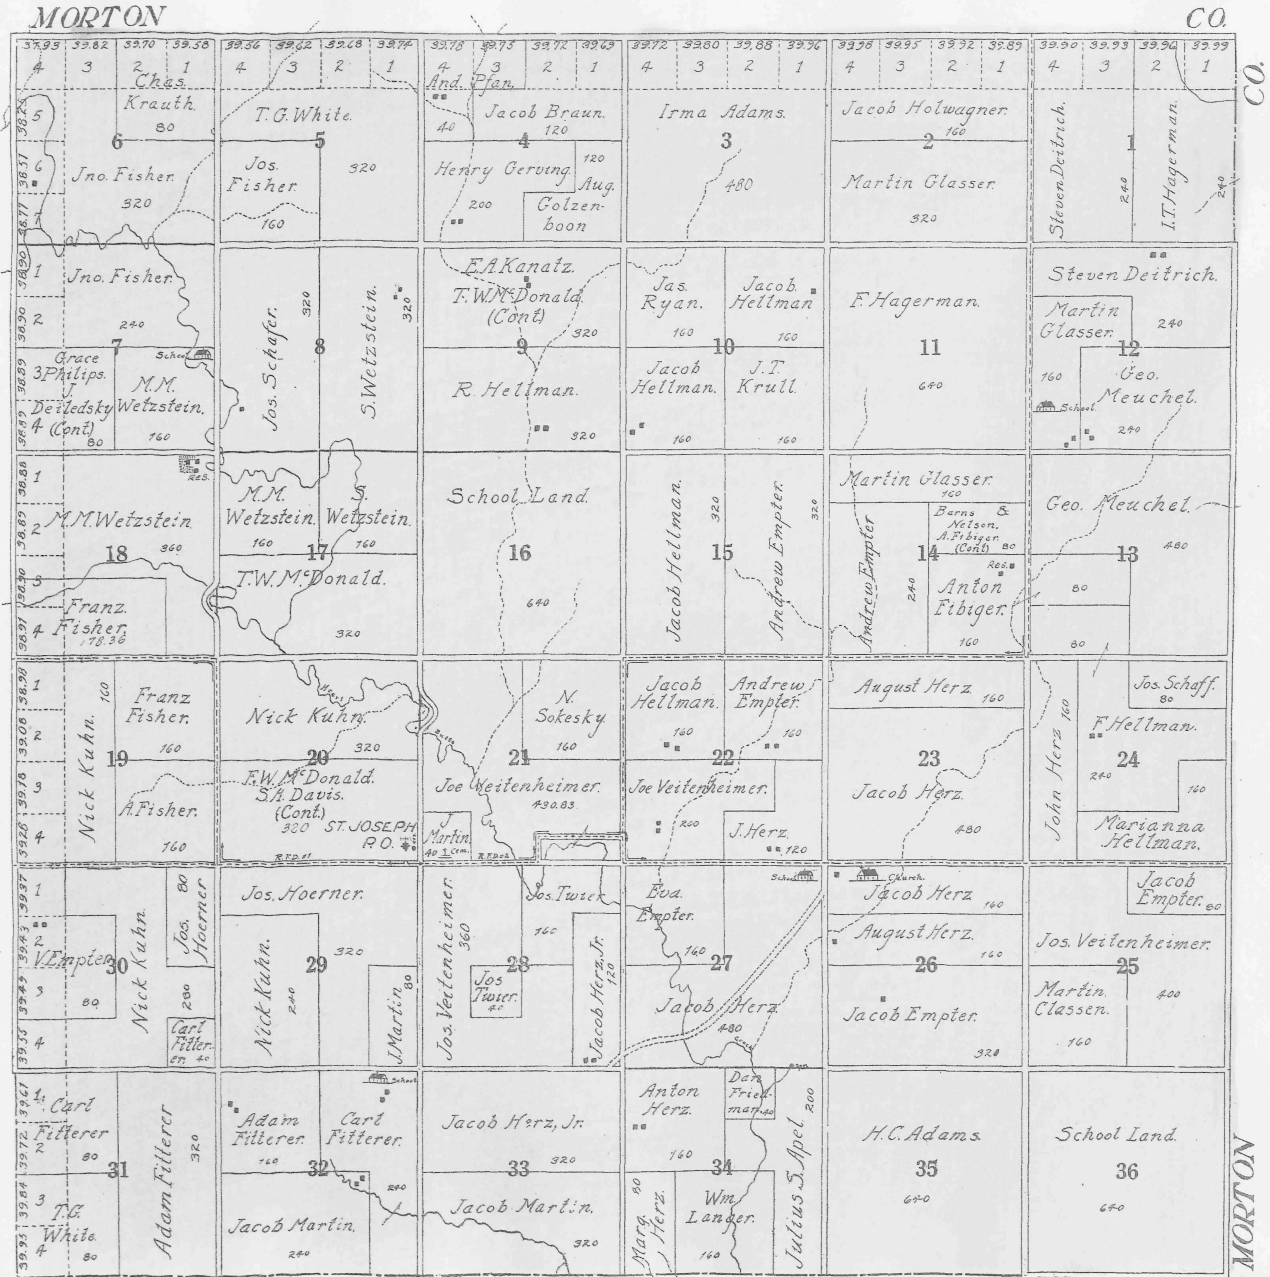 MORTON
CO.
CO.
37.93 39.82 39.70 39.58
39.56 39.62 39.68 39.74
39.78 39.75 39.72 39.69
39.72 39.80 39.88 39.96
39.98 39.95 39.92 39.89
39.90 39.93 39.96 39.99
4 3 2 1
4 3 2 1
4 3 2 1
4 3 2 1
4 3 2 1
4 3 2 1
Chas.
Krauth
80
5
38.25
6
6
38.51
Jno. Fisher.
320
7
38.77
T.G. White.
5
320
Jos.
Fisher.
160
And. Pfan.
40
Jacob Braun.
120
4
Henry Gerving
200
120
Aug.
Golzen-
boon
Irma Adams.
3
480
Jacob Holwagner.
160
2
Martin Glasser.
320
Steven Deitrich.
240
1
I.T. Hagerman.
240
38.90
1
Jno. Fisher.
38.90
2
240
7
School
38.89
Grace
3 Philips.
J.
Deiledsky
4 (Cont)
80
38.89
M.M.
Wetzstein.
160
Jos. Schafer.
320
8
S. Wetzstein.
320
E.A. Kanatz.
T.W. McDonald
(Cont)
320
9
R. Hellman.
320
Jas.
Ryan.
160
Jacob
Hellman
160
10
Jacob
Hellman.
160
J.T.
Krull.
160
F. Hagerman.
11
640
Steven Deitrich.
240
Martin
Glasser.
160
12
School.
Geo.
Meuchel.
240
38.88
1
Res.
38.89
2
M.M. Wetzstein
360
18
38.90
3
Franz.
Fisher.
178.36
38.91
4
M.M.
Wetzstein.
160
S.
Wetzstein.
160
17
T.W. McDonald.
320
School Land.
16
640
Jacob Hellman.
320
15
Andrew Empter.
320
Martin Glasser.
160
Andrew Empter
240
14
Barns &
Nelson.
A. Fibiger.
(Cont) 80
Res.
Anton
Fibiger.
160
Geo. Meuchel.
480
13
80
80
38.98
1
39.08
2
39.18
3
39.28
4
Nick Kuhn.
160
19
Franz
Fisher.
160
A. Fisher.
160
Heart
Nick Kuhn.
320
20
F.W. McDonald.
S.A. Davis.
(Cont.)
320
ST. JOSEPH
P.O.
R.F.D. #1
Butte
N.
Sokesky.
160
21
Joe Veitenheimer.
430.83
J.
Martin.
40
Cem.
R.F.D. #2
Jacob
Hellman.
160
Andrew
Empter.
160
22
Joe Veitenheimer.
200
J. Herz.
120
August Herz
160
23
Jacob Herz.
480
John Herz
160
Jos. Schaff.
80
F. Hellman.
24
240
160
Marianna
Hellman.
39.37
1
39.43
2
39.49
3
39.55
4
V. Empter
80
30
Nick Kuhn.
280
Jos.
Hoerner
80
Carl
Fitter-
er. 40
Jos. Hoerner.
320
29
Nick Kuhn.
240
J. Martin
80
Jos. Veitenheimer.
360
Jos. Twier.
160
28
Jos
Twier.
40
Jacob Herz, Jr.
120
Eva.
Empter.
160
School
27
Jacob Herz.
480
Creek
Church.
Jacob Herz
160
August Herz.
160
26
Jacob Empter.
320
Jacob
Empter.
80
Jos. Veitenheimer.
25
400
Martin
Classen.
160
39.61
1
Carl
Fitterer
39.72
2
80
31
39.84
3
T.G.
White.
39.95
4
80
Adam Fitterer
320
School
Adam
Fitterer.
160
Carl
Fitterer.
240
32
Jacob Martin.
240
Jacob Herz, Jr.
320
33
Jacob Martin.
320
Anton
Herz.
160
Dan
Fried-
man. 40
34
Marg. Herz.
80
Wm.
Langer.
160
Julius S. Apel.
200
H.C. Adams.
35
640
School Land.
36
640
MORTON